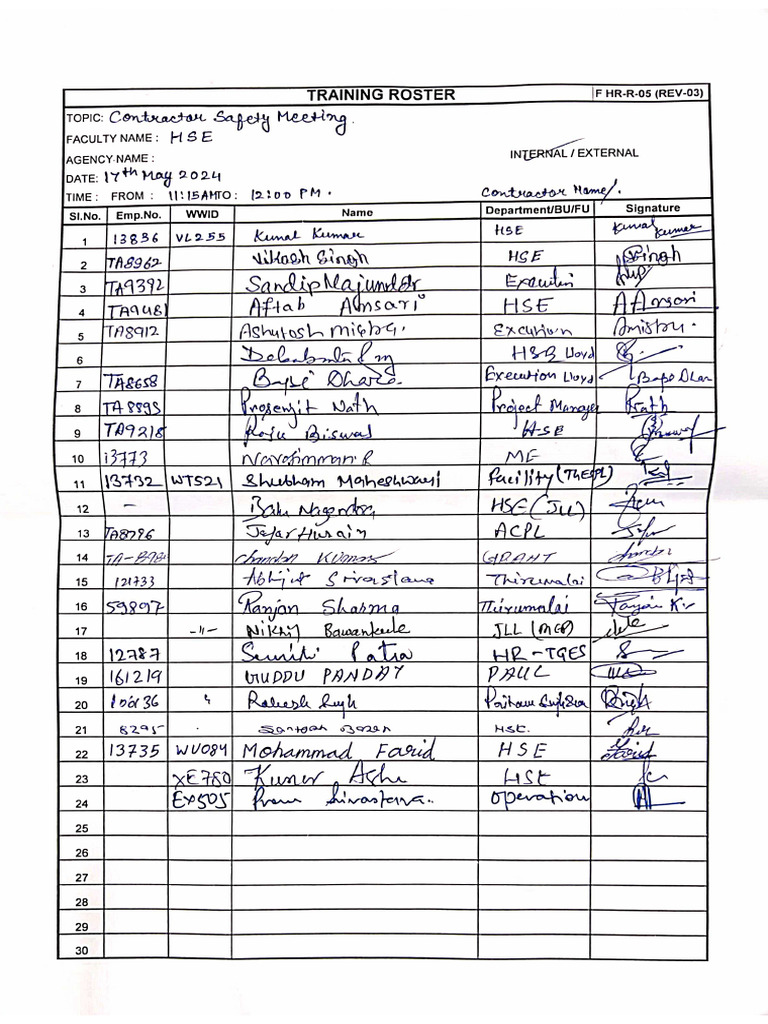 TRAINING ROSTER F HR-R-05 (REV-03)
TOPIC: Contractor Safety Meeting.
FACULTY NAME : HSE
AGENCY NAME : INTERNAL / EXTERNAL
DATE: 17th May 2024
TIME : FROM : 11:15AM TO : 12:00 PM. Contractor Name/.
Sl.No. Emp.No. WWID Name Department/BU/FU Signature
1 13836 VL255 Kunal Kumar HSE Kunal Kumar
2 TA8962 Vikash Singh HSE Singh
3 TA9392 Sandip Majumdar
4 TA9481 Aftab Ansari HSE A Ansari
5 TA8912 Ashutosh Mishra. Execution
6 HSE Lloyd
7 TA8658 Bapi Dhara Execution Lloyd
8 TA8895 Prosenjit Nath Project Manager
9 TA9218 Raju Biswas HSE
10 13773 Narasimman R ME
11 13732 WTS21 Shubham Maheshwari Facility (TGESPL)
12 - Nagendra HSE (JLL)
13 TA8796 Jafar Husain ACPL
14 Chandan Kumar
15 121733 Abhijit Srivastava Thirumalai
16 59897 Ranjan Sharma Thirumalai
17 -"- Nikhil Bawankule JLL (MEP)
18 12787 Patra HR-TGES
19 161219 GUDDU PANDAY
20 Rakesh Singh
21 8295 Santosh HSE.
22 13735 WU084 Mohammad Farid HSE Farid
23 XE780 HSE
24 EX505 Prem Srivastava.. Operation
25
26
27
28
29
30